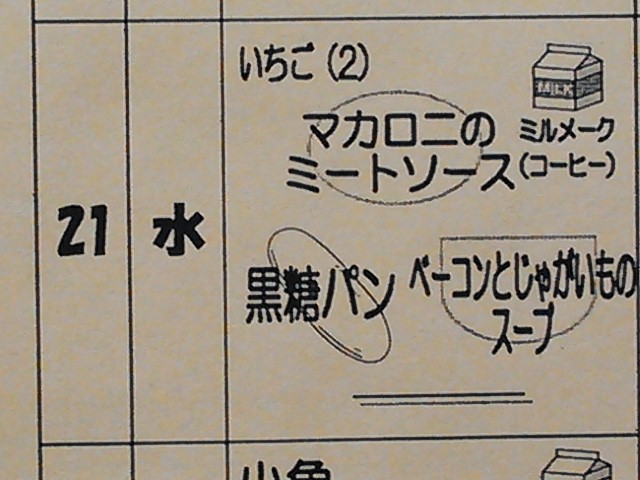 21
水
いちご(2)
MILK
マカロニの
ミートソース
ミルメーク
(コーヒー)
黒糖パン
ベーコンとじゃがいもの
スープ
小魚